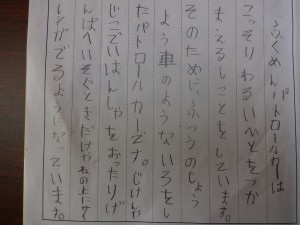 ふくめんパトロールカーは
こっそりわるいひとをつか
まえるしごとをしています。
そのためにふつうのじょう
よう車のようないろをし
たパトロールカーです。じけんや
じこではんしゃをおったりげ
んばへいそぐときだけやねの上にサイ
レンがでるようになっています。